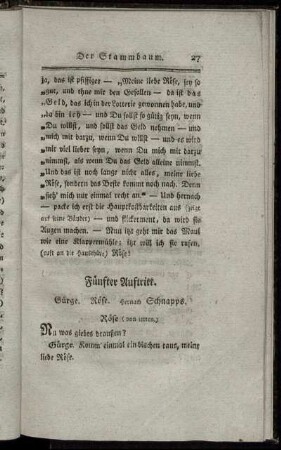 Der Stammbaum. 27
ja, das ist pfiffiger — „Meine liebe Röse, sey so
„gut, und thue mir den Gefallen — da ist das
„Geld, das ich in der Lotterie gewonnen habe, und
„da bin ich — und Du sollst so gütig seyn, wenn
„Du willst, und sollst das Geld nehmen — und
„mich mit darzu, wenn Du willst — und es wird
„mir viel lieber seyn, wenn Du mich mit darzu
„nimmst, als wenn Du das Geld alleine nimmst.
„Und das ist noch lange nicht alles, meine liebe
„Röse, sondern das Beste kommt noch nach. Denn
„sieh' mich nur einmal recht an.“ — Und hernach
— packe ich erst die Hauptkostbarkeiten aus (zeigt
auf seine Bänder) — und flickerment, da wird sie
Augen machen. — Nun itzt geht mir das Maul
wie eine Klappermühle; itzt will ich sie rufen,
(ruft an die Hausthüre) Röse!
Fünfter Auftritt.
Görge. Röse. hernach Schnapps.
Röse (von innen.)
Na was giebts draußen?
Görge. Komm einmal ein bischen raus, meine
liebe Röse.